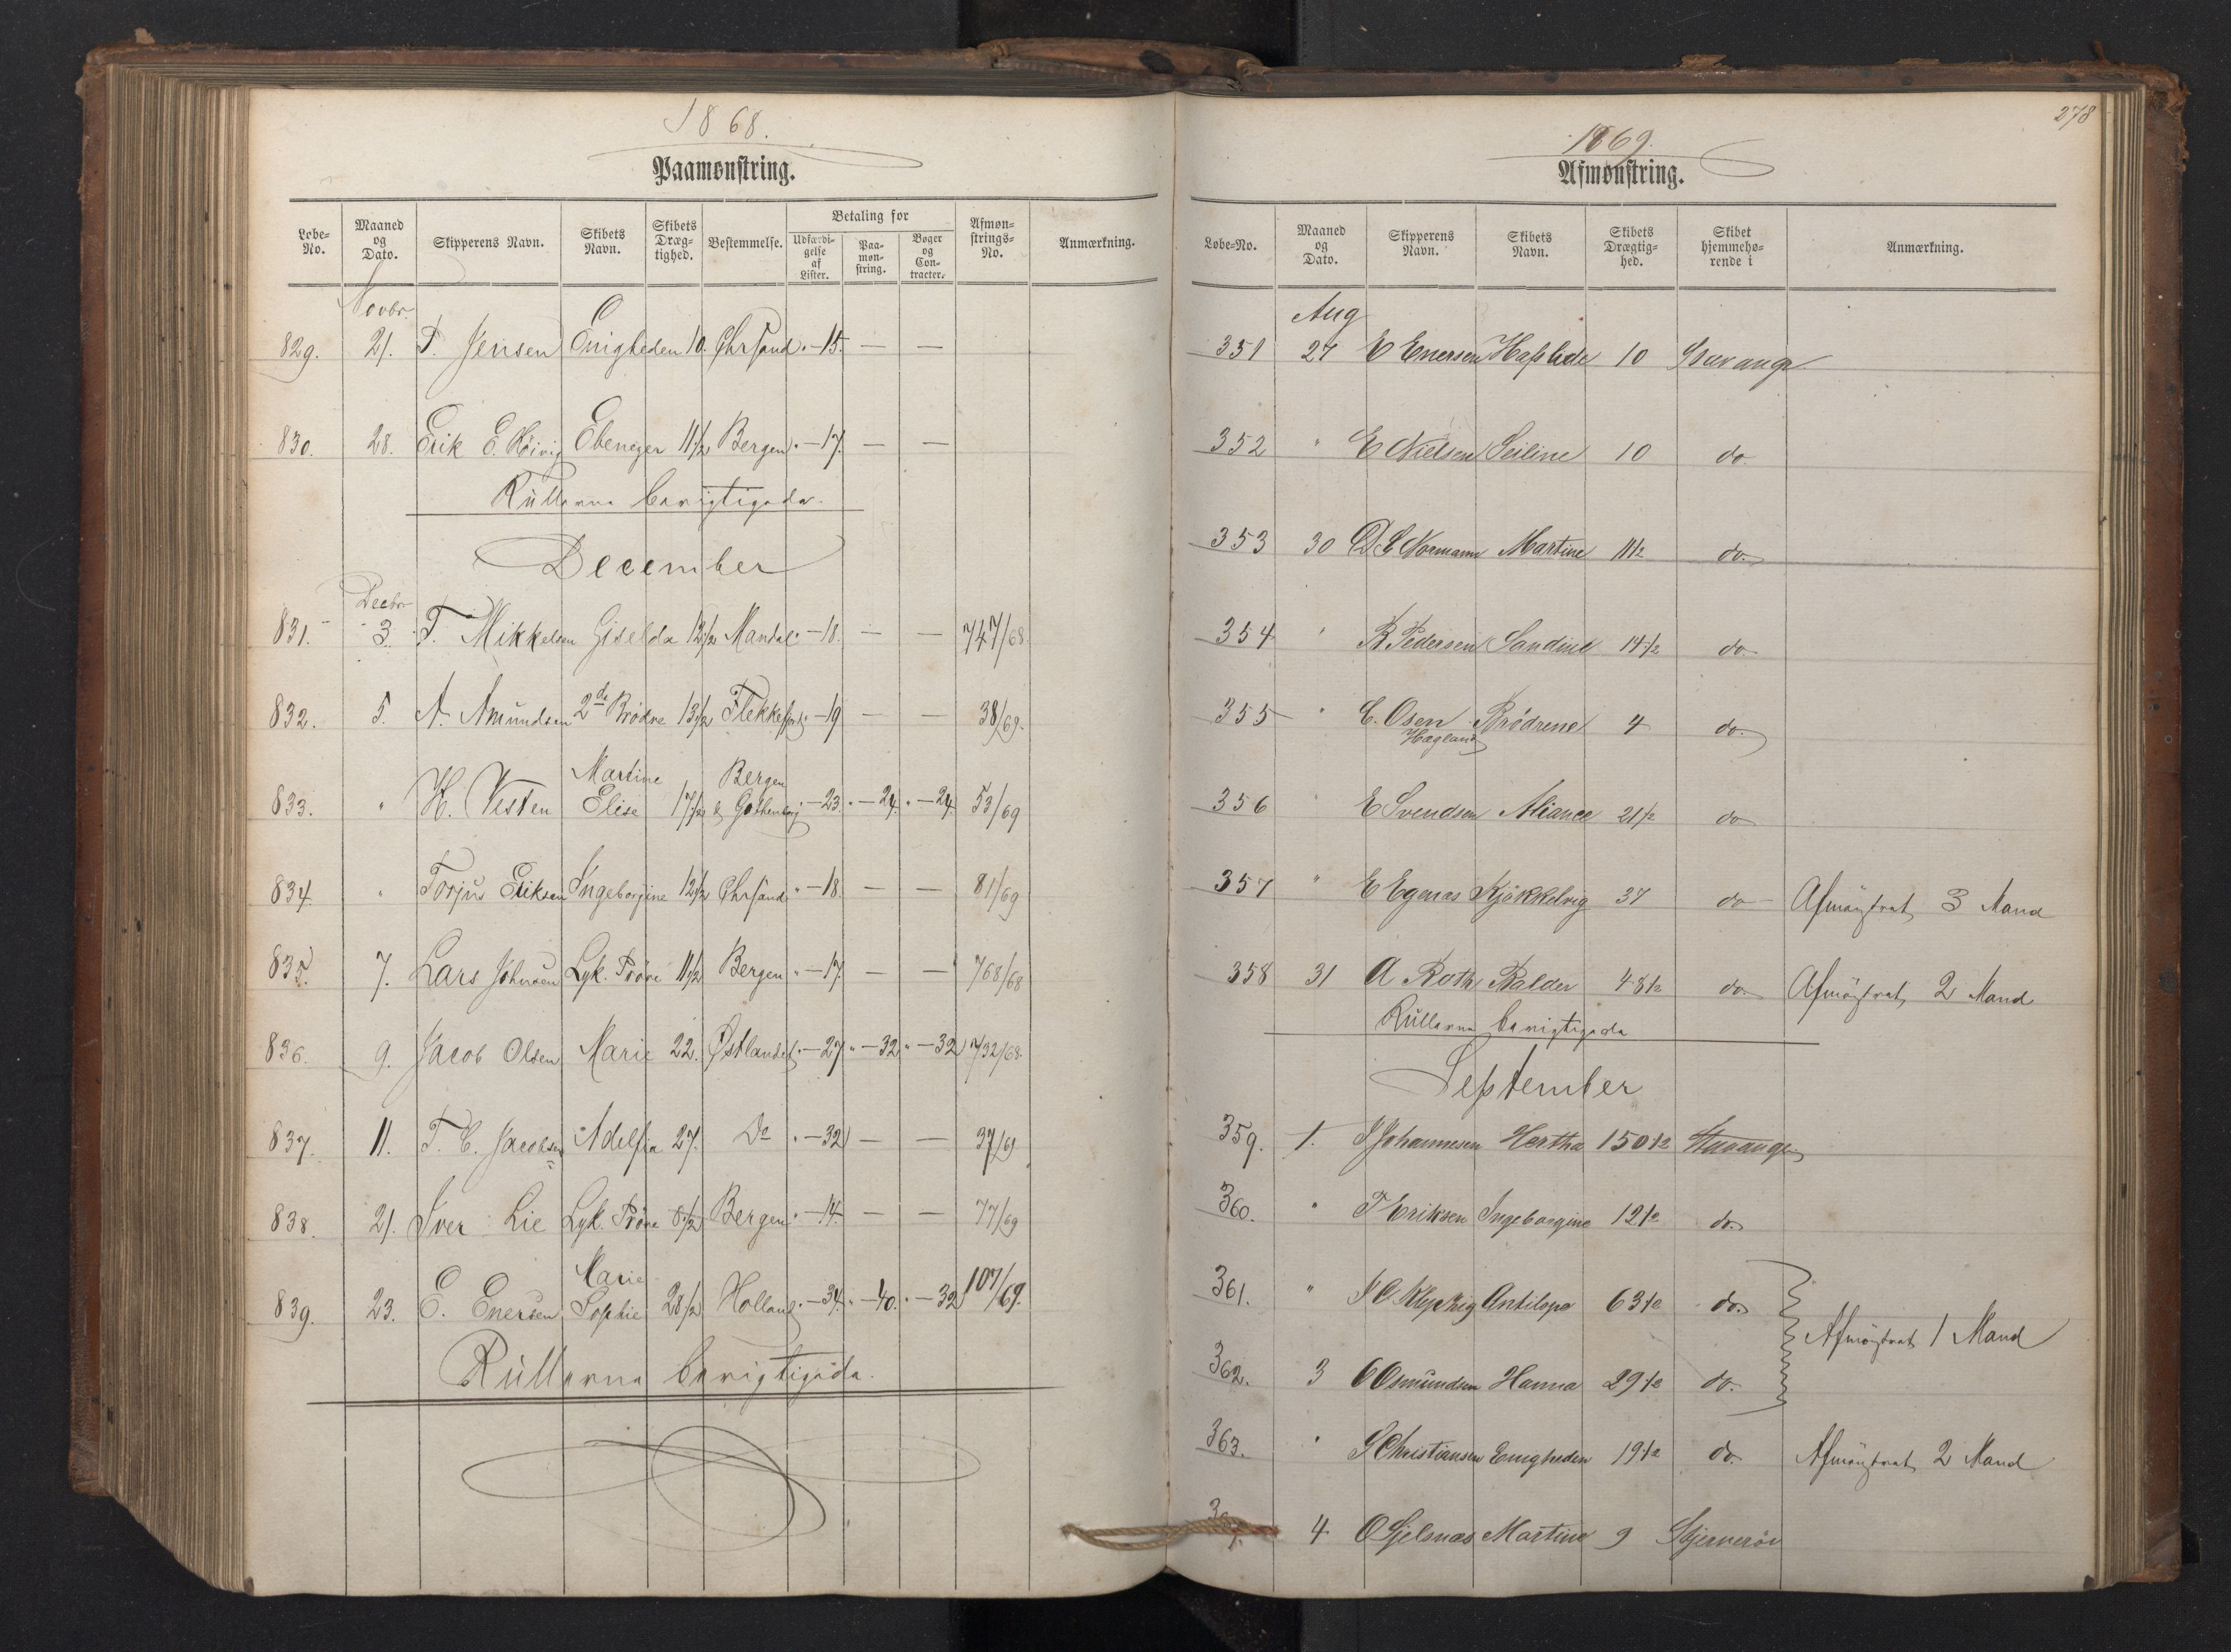 1868.
Paamønstring.
Løbe-No. Maaned og Dato. Skipperens Navn. Skibets Navn. Skibets Dræg-tighed. Bestemmelse. Betaling for Udfærdi-gelse af Lister. Paa-møn-string. Bøger og Con-tracter. Afmøn-strings-No. Anmærkning.
Novbr.
829. 21. T. Jensen Enigheden 10. Chrsand. " - 15. — —
830. 28. Erik E. Høivig Ebeneger 11 1/2 Bergen " - 17. — —
Rullerne berigtigede.
December
Decbr
831. 3. T. Mikkelsen Giselda 12 1/2 Mandal " - 18. — — 747/68
832. 5. A. Amundsen 2de Brødre 13 1/2 Flekkefjord " - 19 — — 38/69.
833. " H. Vesten Martine Elise 17 1/2 Bergen & Gothenborg " - 23. " - 24. " - 24. 53/69
834. " Torjus Eriksen Ingeborgine 12 1/2 Chrsand " - 18. — — 81/69
835. 7. Lars Johnsen Lyk. Prøve 11 1/2 Bergen " - 17. — — 768/68
836. 9. Jacob Olsen Marie 22. Østlandet " - 27 " - 32 " - 32 732/68.
837. 11. T. C. Jacobsen Adelfia 27. Do " - 32 — — 37/69
838. 21. Iver Lie Lyk. Prøve 8 1/2 Bergen " - 14. — — 77/69
839. 23. E. Enersen Marie Sophie 28 1/2 Holland " - 34. " - 40. " - 32 107/69.
Rullerne berigtigede.
278
1869.
Afmønstring.
Løbe-No. Maaned og Dato. Skipperens Navn. Skibets Navn. Skibets Drægtig-hed. Skibet hjemmehø-rende i Anmærkning.
Aug
351 27 E Enersen Hafslide 10 Stavange
352 " E Nielsen Seiline 10 do
353 30 D E Normann Martine 11 1/2 do
354 " R. Pedersen Sandine 14 1/2 do
355 " C. Osen Hagland Brødrene 4 do.
356 " E Svendsen Aliance 21 1/2 do
357 " E Egenæs Kjøkkelvig 37 do Afmønstret 3 Mand
358 31 A Roth Balder 48 1/2 do. Afmønstret 2 Mand
Rullerne berigtigede
September
359. 1. J Johannesen Hertha 150 1/2 Stavange
360. " T Eriksen Ingeborgine 12 1/2 do.
361. " Antilope 63 1/2 do.
Afmønstret 1 Mand
362. 3 O Osmundsen Hanna 29 1/2 do.
363. " S Christiansen Enigheden 19 1/2 do. Afmønstret 2 Mand
4 O Gjelsnæs Martine 9 Stjernerøe